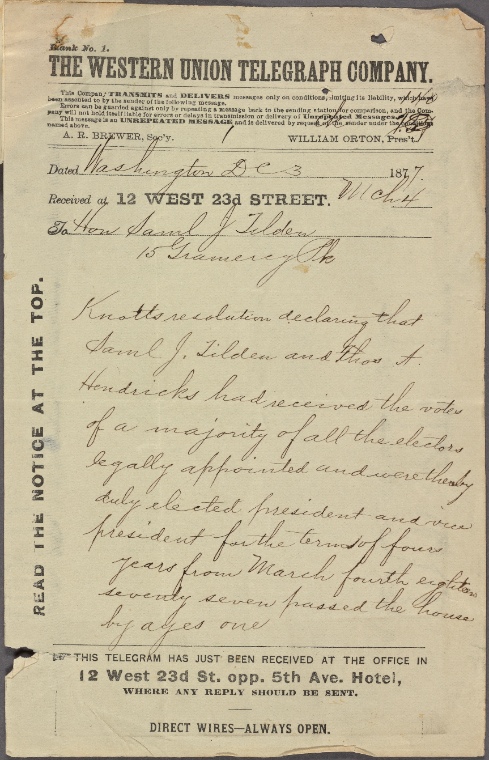 Blank No. 1.
THE WESTERN UNION TELEGRAPH COMPANY.
This Company TRANSMITS and DELIVERS messages only on conditions, limiting its liability, which have
been assented to by the sender of the following message.
Errors can be guarded against only by repeating a message back to the sending station for comparison, and the Com-
pany will not hold itself liable for errors or delays in transmission or delivery of Unrepeated Messages.
This message is an UNREPEATED MESSAGE and is delivered by request of the sender under the conditions
named above.
A. R. BREWER, Sec'y. WILLIAM ORTON, Pres't.
Dated Washington DC 3 1877.
Received at 12 WEST 23d STREET. Mch 4
To Hon Saml J Tilden
15 Gramercy Pk
Knotts resolution declaring that
Saml J. Tilden and Thos. A.
Hendricks had received the votes
of a majority of all the electors
legally appointed and were thereby
duly elected president and vice
president for the terms of four
years from March fourth eighteen
seventy seven passed the house
by ayes one
READ THE NOTICE AT THE TOP.
THIS TELEGRAM HAS JUST BEEN RECEIVED AT THE OFFICE IN
12 West 23d St. opp. 5th Ave. Hotel,
WHERE ANY REPLY SHOULD BE SENT.
DIRECT WIRES—ALWAYS OPEN.